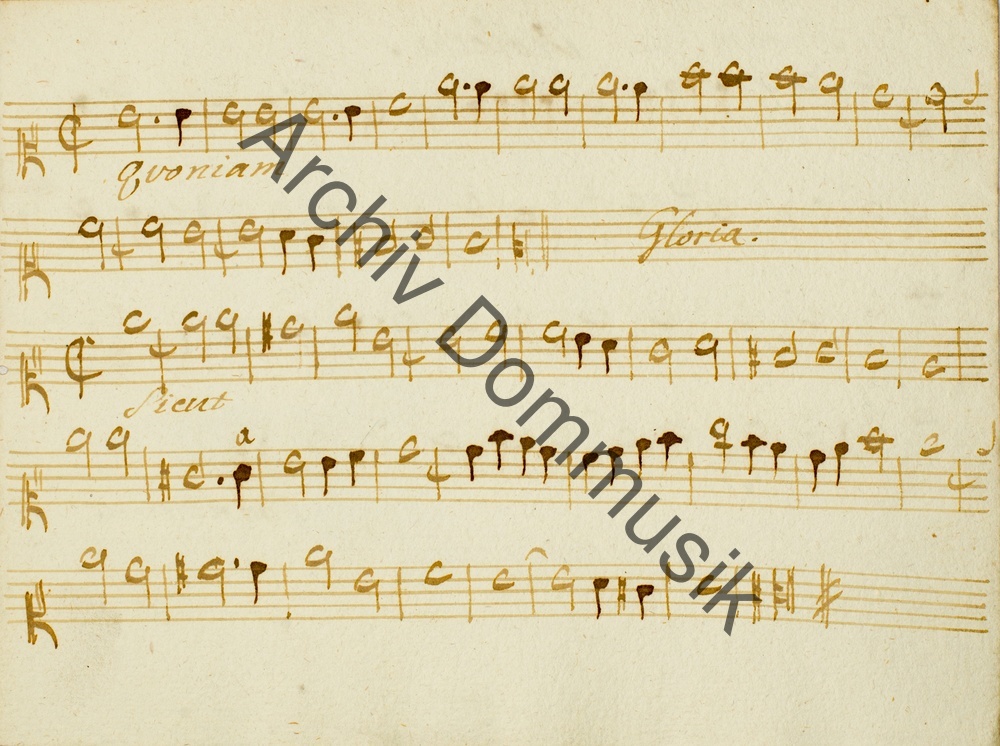 Quoniam
Gloria.
Sicut
a
Archiv Dommusik